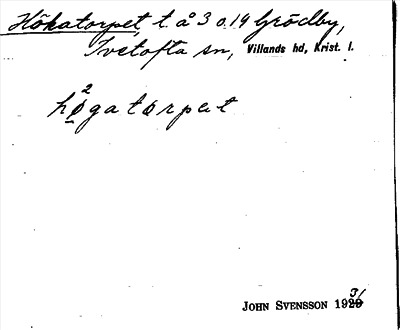 Hökatorpet, t. å 3 o. 19 Grödby,
Ivetofta sn, Villands hd, Krist. l.
hø̱²gatorpet
JOHN SVENSSON 1931